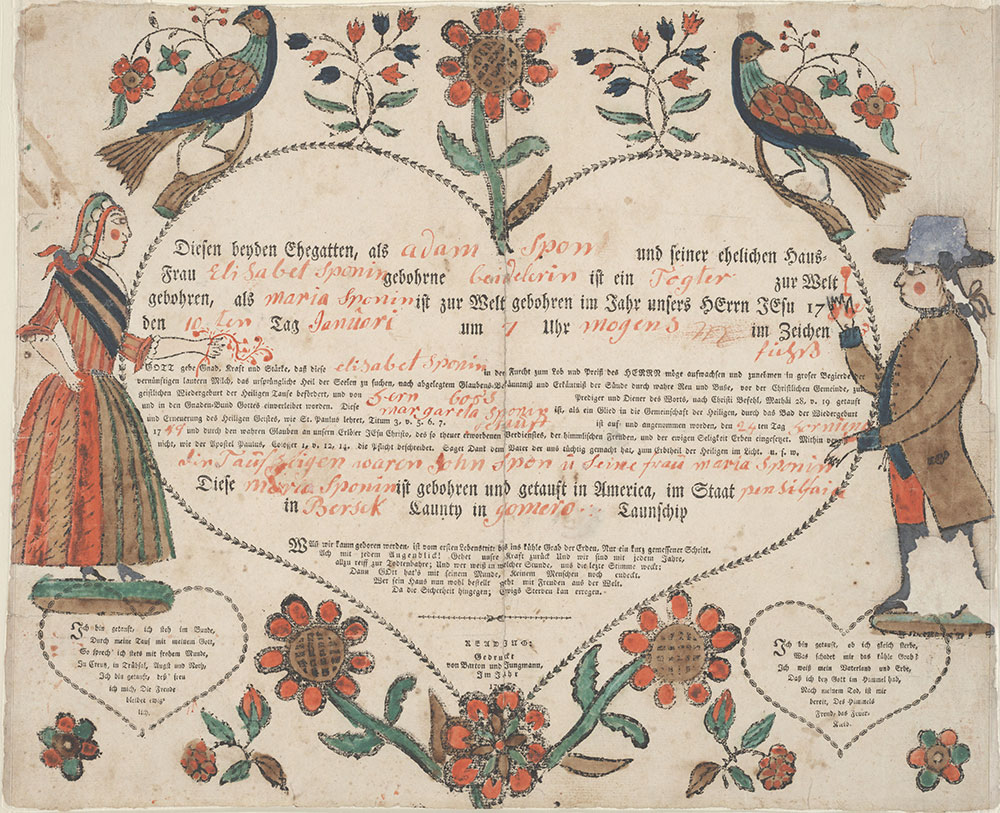 Diesen beyden Ehegatten, als adam Spon und seiner ehelichen Haus-
Frau Elisabet Sponin gebohrne beidelerin ist ein Togter zur Welt
gebohren, als maria Sponin ist zur Welt gebohren im Jahr unsers HErrn JEsu 17
den 10ten Tag Januari um 7 Uhr mogens im Zeichen
fichß
GOTT gebe Gnad, Kraft und Stärke, daß diese elisabet Sponin in der Furcht zum Lob und Preiß des HERRN möge aufwachsen und zunehmen in grosser Begierde der
vernünftigen lautern Milch, das ursprüngliche Heil der Seelen zu suchen, nach abgelegten Glaubens-Bekänntniß und Erkäntniß der Sünde durch wahre Reu und Buse, vor der Christlichen Gemeinde, zur
geistlichen Wiedergeburt der Heiligen Taufe befördert, und von Hern boß Prediger und Diener des Worts, nach Christi Befehl, Mathäi 28. v. 19 getauft
und in den Gnaden-Bund Gottes einverleibet worden. Diese margareta Sponin ist, als ein Glied in die Gemeinschaft der Heiligen, durch das Bad der Wiedergeburt
und Erneuerung des Heiligen Geistes, wie St. Paulus lehret, Titum 3, v. 5. 6. 7. getauft ist auf- und angenommen worden, den 24ten Tag
17 und durch den wahren Glauben an unsern Erlöser JEsu Christo, des so theuer erworbenen Verdienstes, der himmlischen Freuden, und der ewigen Seligkeit Erben eingesetzet. Mithin
nicht, wie der Apostel Paulus, Colosser 1, v. 12, 14. die Pflicht beschreibet. Saget Dank dem Vater der uns tüchtig gemacht hat, zum Erbtheil der Heiligen im Licht. u. s. w.
die Taufzeigen waren John Spon u Seine frau maria Sponin
Diese maria Sponin ist gebohren und getauft in America, im Staat pensilfaia
in Bersck Caunty in gomero Taunschip
Wann wir kaum geboren werden, ist vom ersten Lebenstritt bis ins kühle Grab der Erden, Nur ein kurz gemessener Schritt.
Ach mit jedem Augenblick! Gehet unsre Kraft zurück Und wir sind mit jedem Jahre,
allzu reiff zur Todtenbahre; Und wer weiß in welcher Stunde, uns die letzte Stimme weckt;
Dann GOtt hat's mit seinem Munde, Keinem Menschen noch endeckt.
Wer sein Haus nun wohl bestellt geht mit Freuden aus der Welt.
Da die Sicherheit hingegen; Ewigs Sterben kan erregen.
READING:
Gedruckt
von Barton und Jungmann,
Im Jahr
Ich bin getauft, ich steh im Bunde,
Durch meine Tauf mit meinem Gott,
So sprech' ich stets mit frohem Munde,
In Creutz, in Trübsal, Angst und Noth,
Ich bin getauft, deß' freu
ich mich, Die Freude
bleibet ewig-
lich.
Ich bin getauft, ob ich gleich sterbe,
Was schadet mir das kühle Grab?
Ich weiß mein Vaterland und Erbe,
Daß ich bey Gott im Himmel hab,
Nach meinem Tod, ist mir
bereit, Des Himmels
Freud, das Feuer-
Kleid.